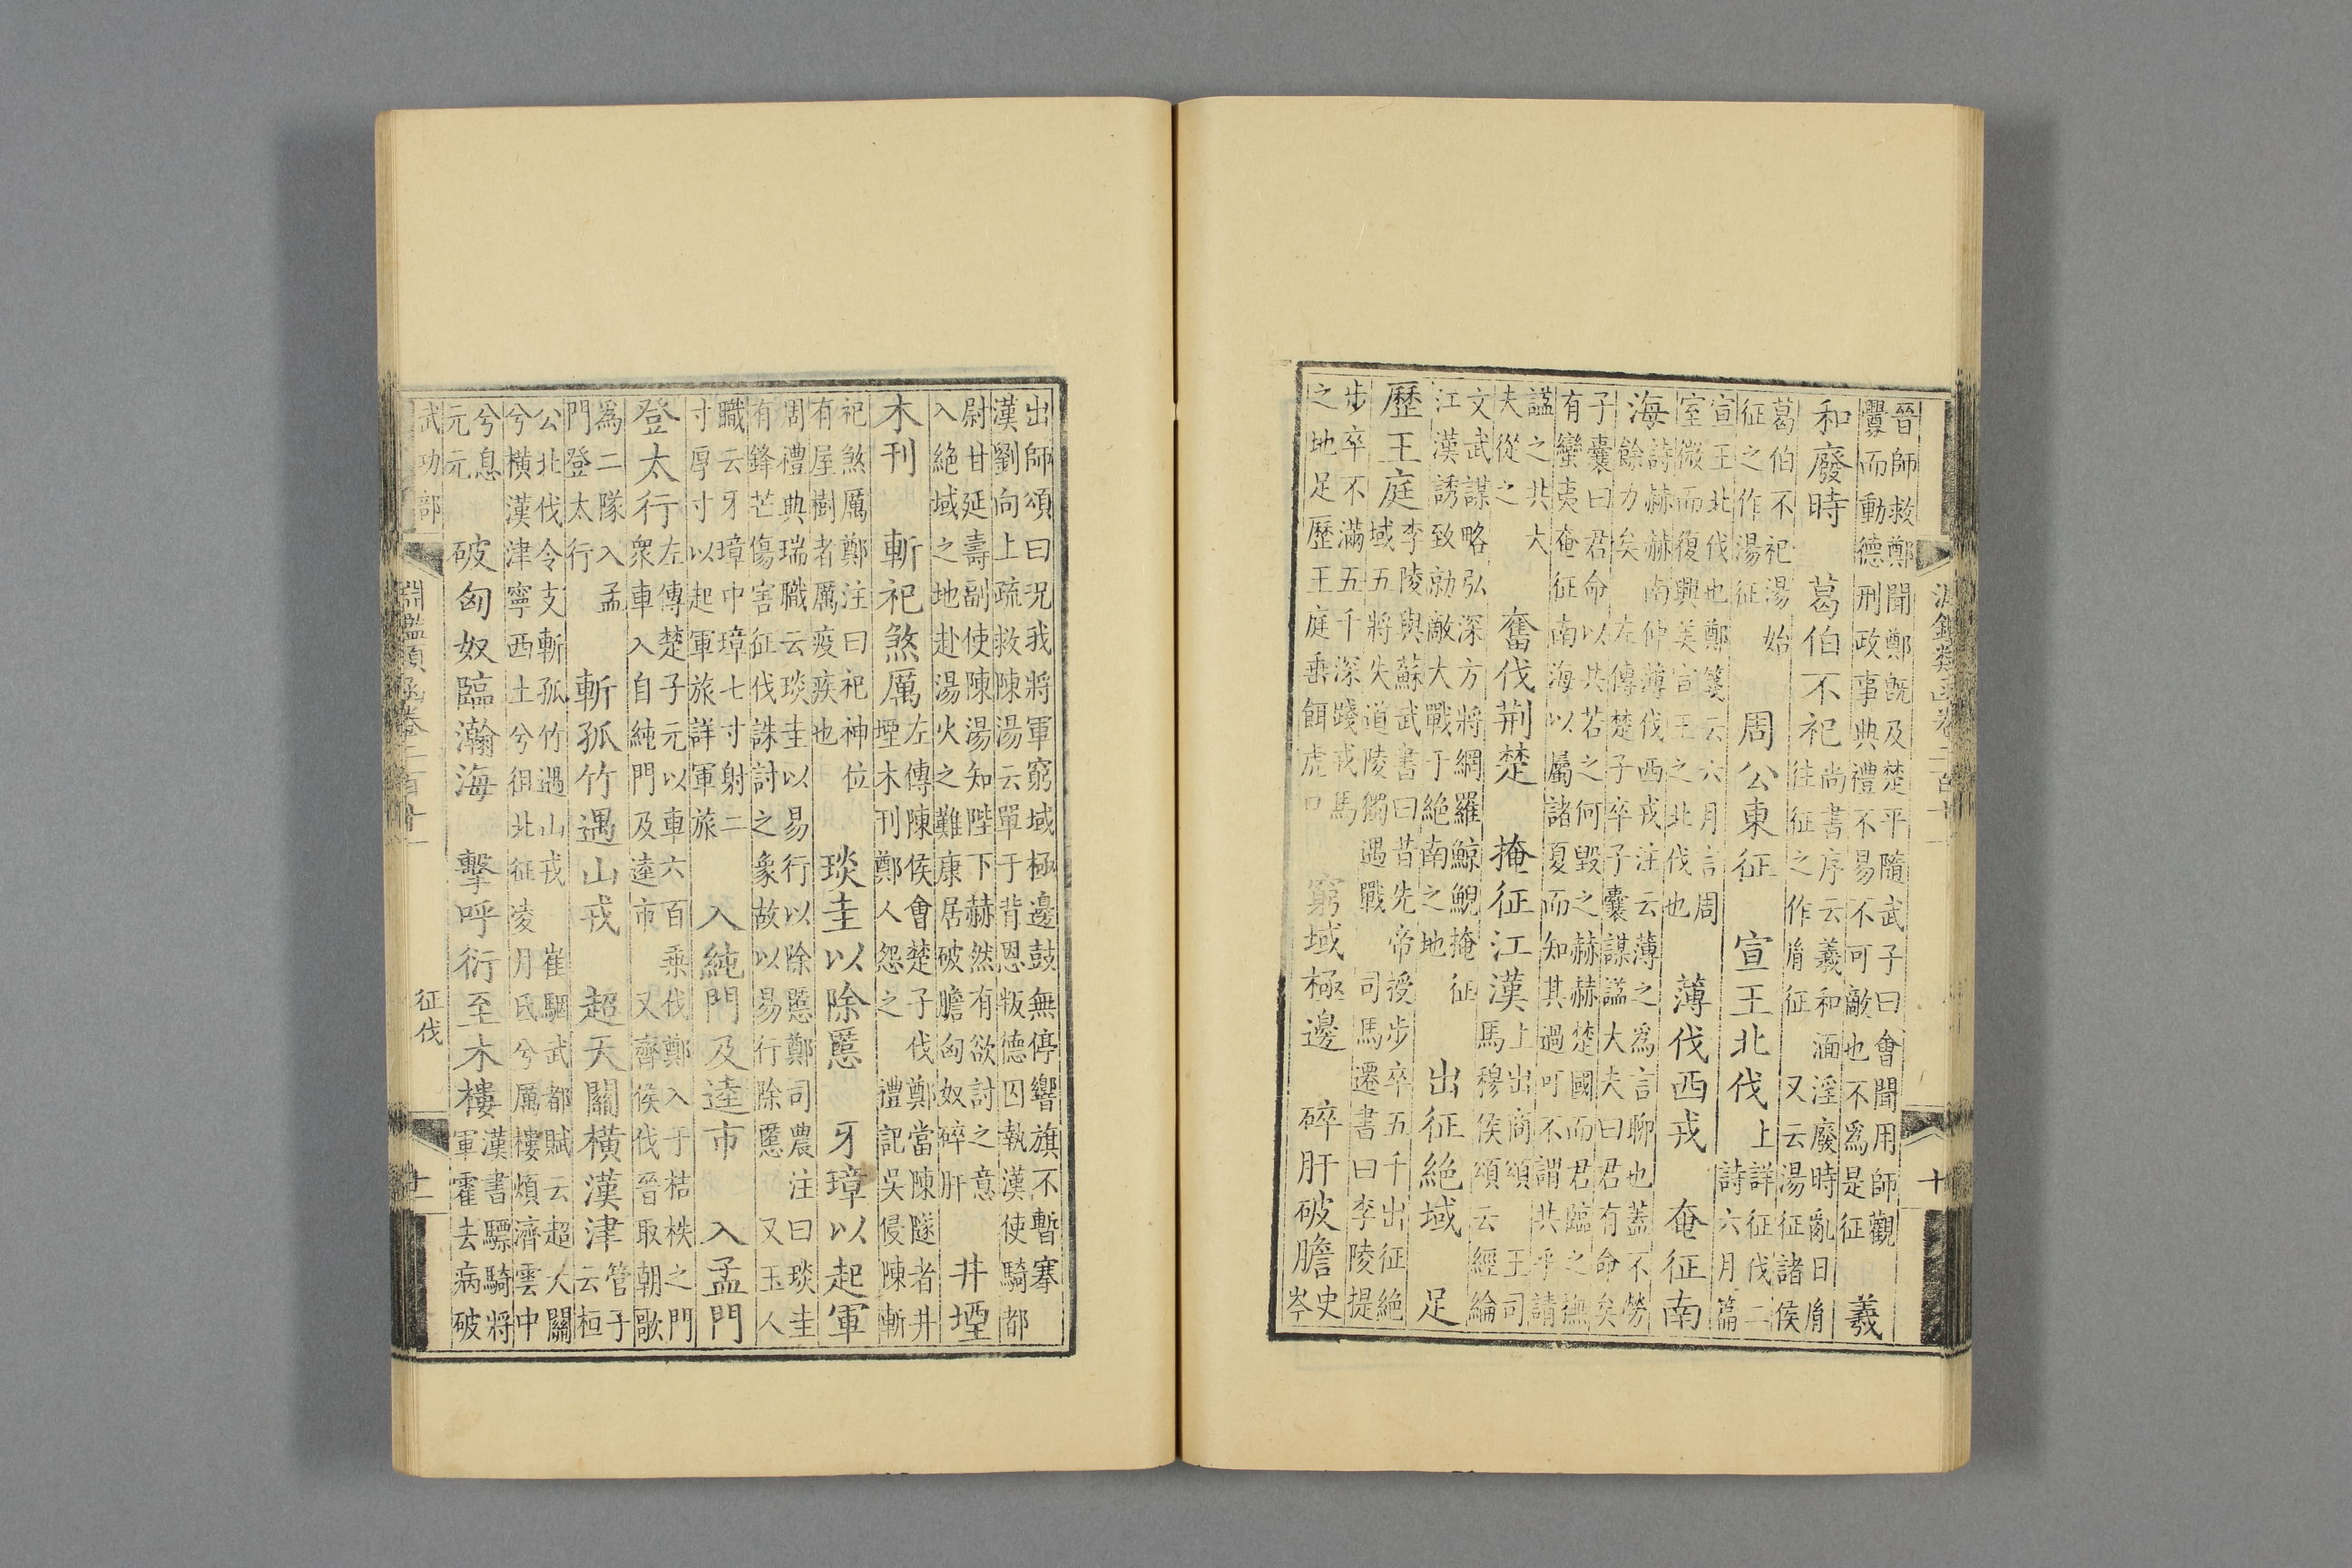 淵鑑類函卷二百十一 十
晉師救鄭聞鄭既及楚平隨武子曰會聞用師觀
釁而動德刑政事典禮不易不可敵也不為是征 羲
和廢時 葛伯不祀 尚書序云羲和湎淫廢時亂日胤
往征之作胤征 又云湯征諸侯
葛伯不祀湯始
征之作湯征 周公東征 宣王北伐 上詳征伐二
詩六月篇
宣王北伐也鄭箋云六月言周
室微而復興美宣王之北伐也 薄伐西戎 奄征南
海 詩赫赫南仲薄伐西戎注云薄之為言聊也蓋不勞
餘力矣 左傳楚子卒子囊謀諡大夫曰君有命矣
子囊曰君命以共若之何毀之赫赫楚國而君臨之撫
有蠻夷奄征南海以屬諸夏而知其過可不謂共乎請
諡之共大
夫從之 奮伐荆楚 掩征江漢 上出商頌 王司
馬穆侯頌云經綸
文武謀略弘深方將網羅鯨鯢掩征
江漢誘致勍敵大戰于絶南之地 出征絶域 足
歷王庭 李陵與蘇武書曰昔先帝授步卒五千出征絶
域五將失道陵獨遇戰 司馬遷書曰李陵提
步卒不滿五千深踐戎馬
之地足歷王庭垂餌虎口 窮域極邊 碎肝破膽 史
岑
出師頌曰況我將軍窮域極邊鼓無停響旗不暫褰
漢劉向上疏救陳湯云單于背恩叛德囚執漢使騎都
尉甘延壽副使陳湯知陛下赫然有欲討之意
入絶域之地赴湯火之難康居破膽匈奴碎肝 井堙
木刊 斬祀煞厲 左傳陳侯會楚子伐鄭當陳隧者井
堙木刊鄭人怨之 禮記吳侵陳斬
祀煞厲鄭注曰祀神位
有屋樹者厲疫疾也 琰圭以除慝 牙璋以起軍
周禮典瑞職云琰圭以易行以除慝鄭司農注曰琰圭
有鋒芒傷害征伐誅討之象故以易行除慝 又玉人
職云牙璋中璋七寸射二
寸厚寸以起軍旅詳軍旅 入純門及逵市 入孟門
登太行 左傳楚子元以車六百乘伐鄭入于桔柣之門
衆車入自純門及逵市 又齊侯伐晉取朝歌
為二隊入孟
門登太行 斬孤竹遇山戎 超天關橫漢津 管子
云桓
公北伐令支斬孤竹遇山戎 崔駰武都賦云超天關
兮橫漢津寧西土兮徂北征凌月氏兮厲樓煩濟雲中
兮息
元元 破匈奴臨瀚海 擊呼衍至木樓 漢書驃騎將
軍霍去病破
武功部 征伐
淵鑑類函卷二百十一 十一